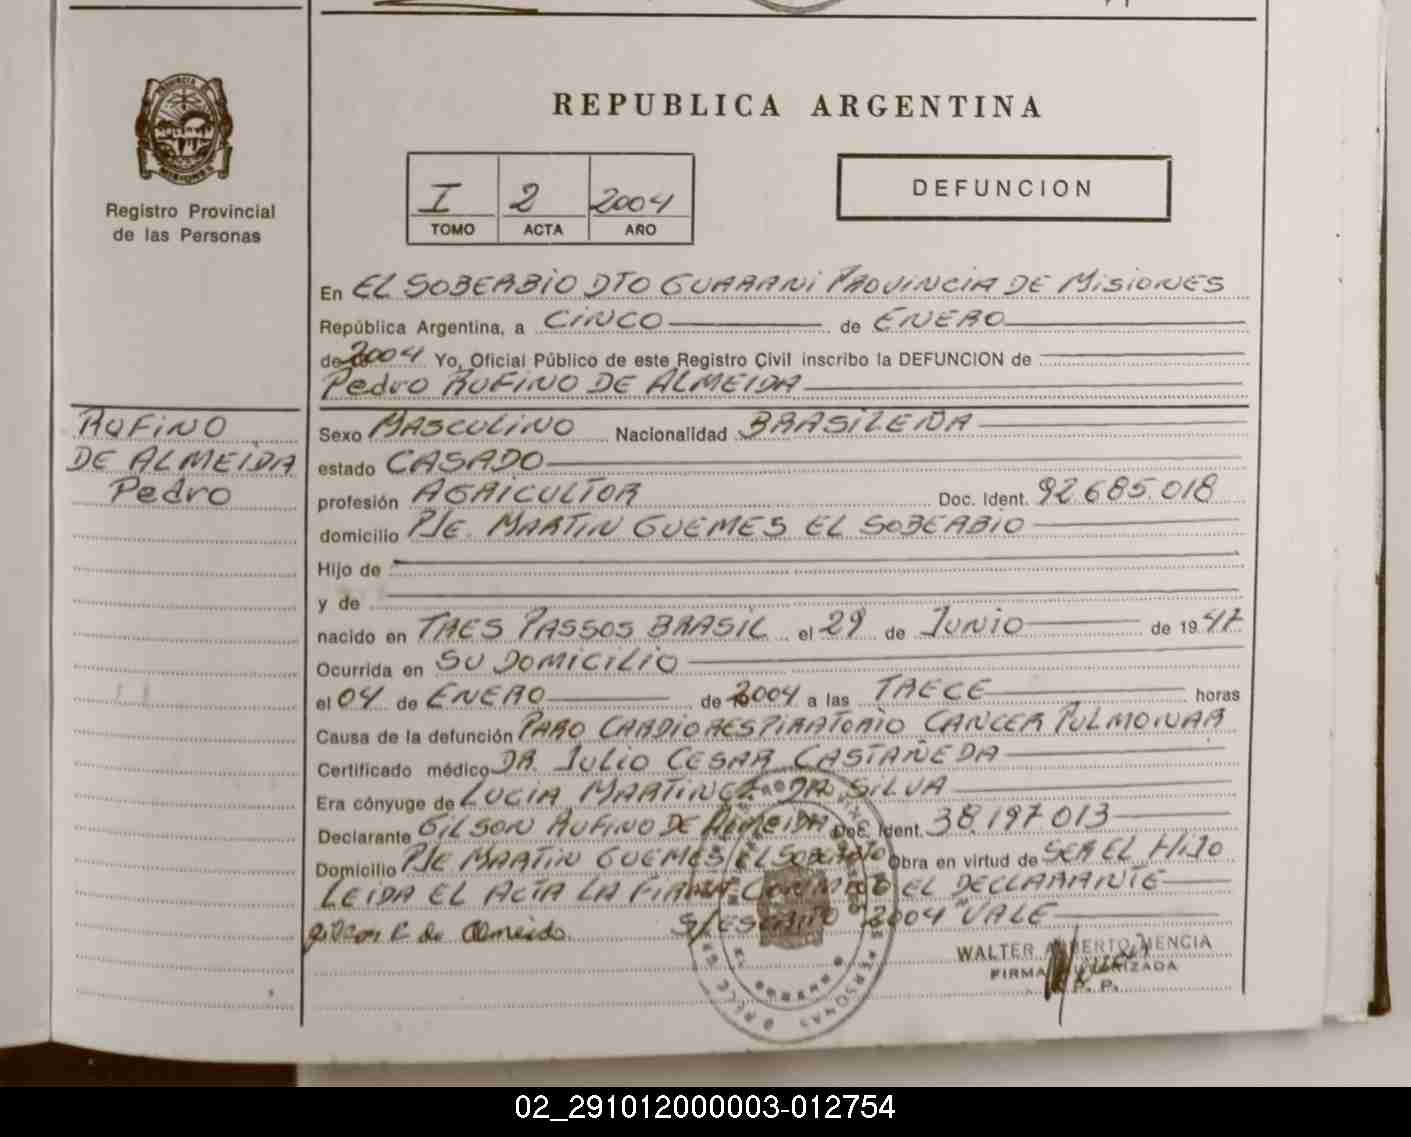 REPUBLICA ARGENTINA
Registro Provincial
de las Personas
I 2 2004
TOMO ACTA AÑO
DEFUNCION
En EL SOBERBIO DTO GUARANI PROVINCIA DE MISIONES
República Argentina, a CINCO de ENERO
de 2004 Yo, Oficial Público de este Registro Civil inscribo la DEFUNCION de
Pedro RUFINO DE ALMEIDA
RUFINO
DE ALMEIDA
Pedro
Sexo MASCULINO Nacionalidad BRASILEÑA
estado CASADO
profesión AGRICULTOR Doc. Ident. 92.685.018
domicilio PJE. MARTIN GUEMES EL SOBERBIO
Hijo de
y de
nacido en TRES PASSOS BRASIL el 29 de JUNIO de 1947
Ocurrida en SU DOMICILIO
el 04 de ENERO de 2004 a las TRECE horas
Causa de la defunción PARO CARDIORESPIRATORIO CANCER PULMONAR
Certificado médico DR. JULIO CESAR CASTAÑEDA
Era cónyuge de LUCIA MARTINEZ DA SILVA
Declarante GILSON RUFINO DE ALMEIDA Doc. Ident. 38.197.013
Domicilio PJE MARTIN GUEMES EL SOBERBIO Obra en virtud de SER EL HIJO
LEIDA EL ACTA LA FIRMA CONMIGO EL DECLARANTE
gilson R de Almeida S/ESCRITO "2004" VALE
WALTER ALBERTO MENCIA
FIRMA AUTORIZADA
R. P. P.
02_291012000003-012754